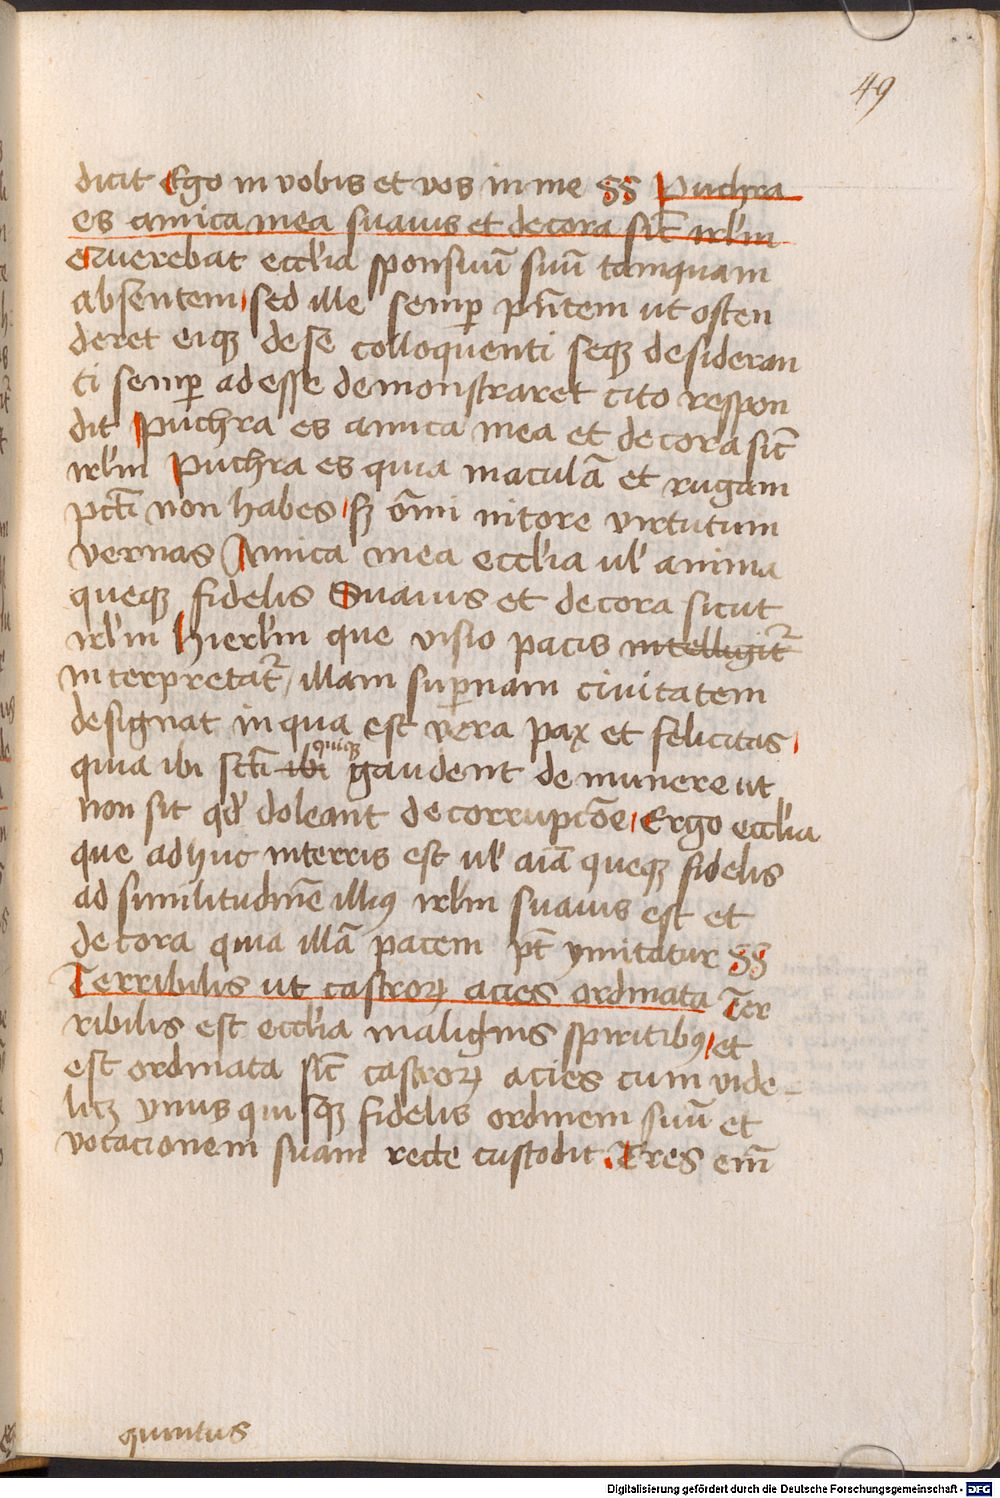 49
dicit Ergo in vobis et vos in me §§ Puchra
es amica mea suavis et decora sic̄ irl'm
q̄uerebat eccl'ia sponsuū suū tamquam
absentem sed ille semꝑ pn̄tem ut osten
deret eiqꝫ de se colloquenti seqꝫ desideran
ti semꝑ adesse demonstraret cito respon
dit puchra es amica mea et decora sic̄
irl'm Puchra es quia maculā et rugam
pcti̅ non habes sꝫ om̄i nitore virtutum
vernas Amica mea eccl'ia ul' anima
queqꝫ fidelis Suavis et decora sicut
irl'm hierl'm que visio pacis intelligit̄
interpretat̄ / illam suꝑnam civitatem
designat in qua est vera pax et felicitas
quia ibi scti̅ ibi quiqꝫ gaudent de munere ut
non sit qd' doleant de corrupcōe Ergo eccl'ia
que adhuc in terris est ul' aīa queqꝫ fidelis
ad similitudinē illiꝰ irl'm suavis est et
decora quia illā pacem pt̄ ymitatur §§
Terribilis ut castroꝝ acies ordinata Ter
ribilis est eccl'ia malignis spiritibꝰ et
est ordinata sic̄ castroꝝ acies cum vide
licꝫ ynus quisqꝫ fidelis ordinem suū et
vocacionem suam recte custodit Tres em̄
quintus
Digitalisierung gefördert durch die Deutsche Forschungsgemeinschaft - DFG